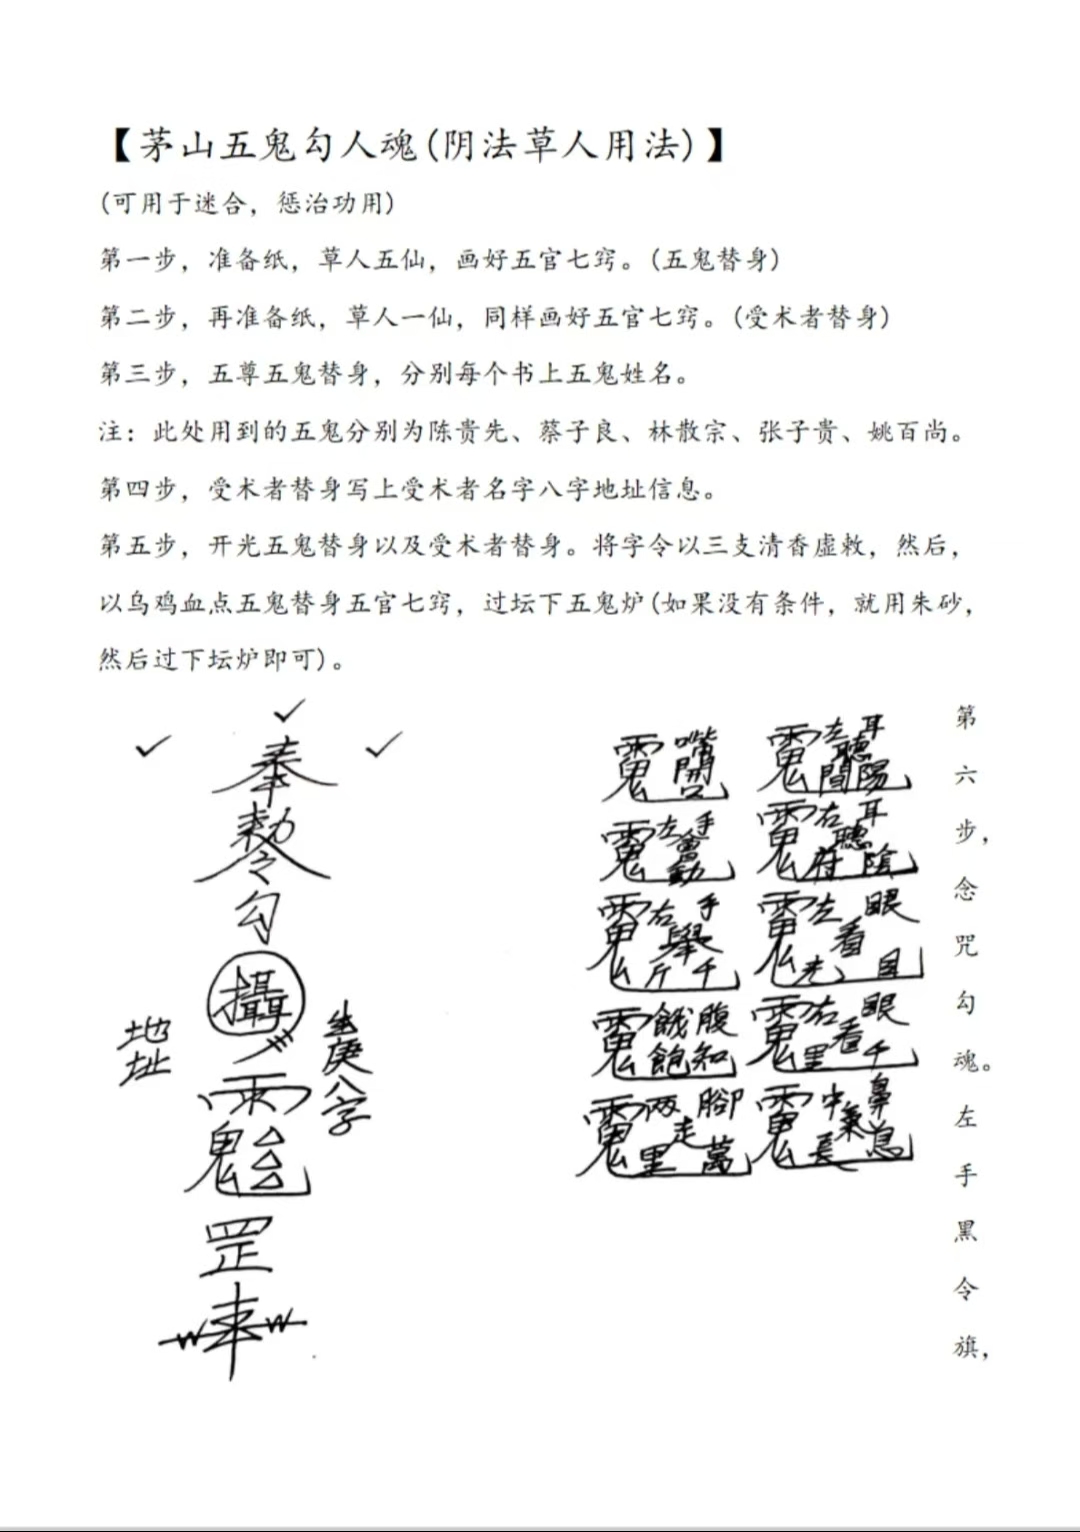 【茅山五鬼勾人魂(阴法草人用法)】
(可用于迷合，惩治功用)
第一步，准备纸，草人五仙，画好五官七窍。(五鬼替身)
第二步，再准备纸，草人一仙，同样画好五官七窍。(受术者替身)
第三步，五尊五鬼替身，分别每个书上五鬼姓名。
注：此处用到的五鬼分别为陈贵先、蔡子良、林散宗、张子贵、姚百尚。
第四步，受术者替身写上受术者名字八字地址信息。
第五步，开光五鬼替身以及受术者替身。将字令以三支清香虚敕，然后，
以乌鸡血点五鬼替身五官七窍，过坛下五鬼炉(如果没有条件，就用朱砂，
然后过下坛炉即可)。
奉
敕令
勾
攝
地址
生庚八字
罡
嘴開
左耳聽陽間
左手會動
右耳聽陰府
右手舉千斤
左眼看
腹知飽餓
右眼看千里
兩腳走萬里
鼻中氣息長
第六步，念咒勾魂。左手黑令旗，